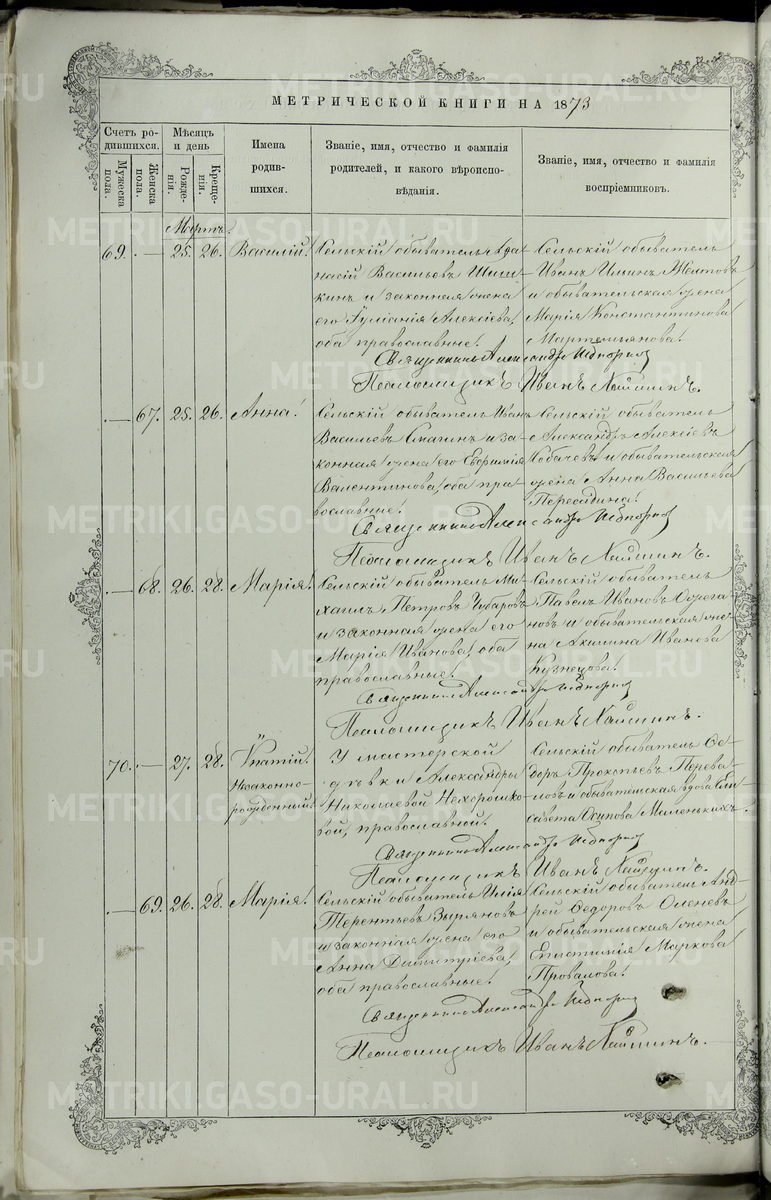 МЕТРИЧЕСКОЙ КНИГИ НА 1873
Счетъ ро-
дившихся.
Мужеска
пола.
Женска
пола.
Мѣсяцъ
и день
Рожде-
нія.
Креще-
нія.
Имена
родив-
шихся.
Званіе, имя, отчество и фамилія
родителей, и какого вѣроиспо-
вѣданія.
Званіе, имя, отчество и фамилія
воспріемниковъ.
Мартъ.
69. — 25. 26. Василій!
Сельскій обыватель Афа-
насій Васильевъ Шиш-
кинъ и законная жена
его Іуліанія Алексіева,
оба православные!
Сельскій обыватель
Иванъ Желтовъ
и обывательская жена
Марія Константинова
Мартемьянова!
Священникъ Александръ
Псаломщикъ Иванъ
— 67. 25. 26. Анна!
Сельскій обыватель Иванъ
Васильевъ и за-
конная жена его Евфимія
Валентинова, оба пра-
вославные!
Сельскій обыватель
Александръ Алексіевъ
и обывательская
жена Анна Васильева
Священникъ Александръ
Псаломщикъ Иванъ
— 68. 26. 28. Марія!
Сельскій обыватель Ми-
хаилъ Петровъ Чубаровъ
и законная жена его
Марія Иванова, оба
православные!
Сельскій обыватель
Павелъ Ивановъ Ожега-
новъ и обывательская же-
на Акилина Иванова
Кузнецова!
Священникъ Александръ
Псаломщикъ Иванъ
70. — 27. 28. Ѵпатій!
Незаконно-
рожденный
У мастерской
дѣвки Александры
Николаевой Нехорошко-
вой, православной!
Сельскій обыватель Ѳе-
доръ Прокопьевъ Перева-
ловъ и обывательская вдова Ели-
савета Осипова Миленькихъ.
Священникъ Александръ
Псаломщикъ Иванъ
— 69. 26. 28. Марія!
Сельскій обыватель Илія
Терентьевъ Зыряновъ
и законная жена его
Анна Димитріева,
оба православные!
Сельскій обыватель Анд-
рей Ѳедоровъ Оленевъ
и обывательская жена
Епистимія Маркова
Провалова!
Священникъ Александръ
Псаломщикъ Иванъ
METRIKI.GASO-URAL.RU